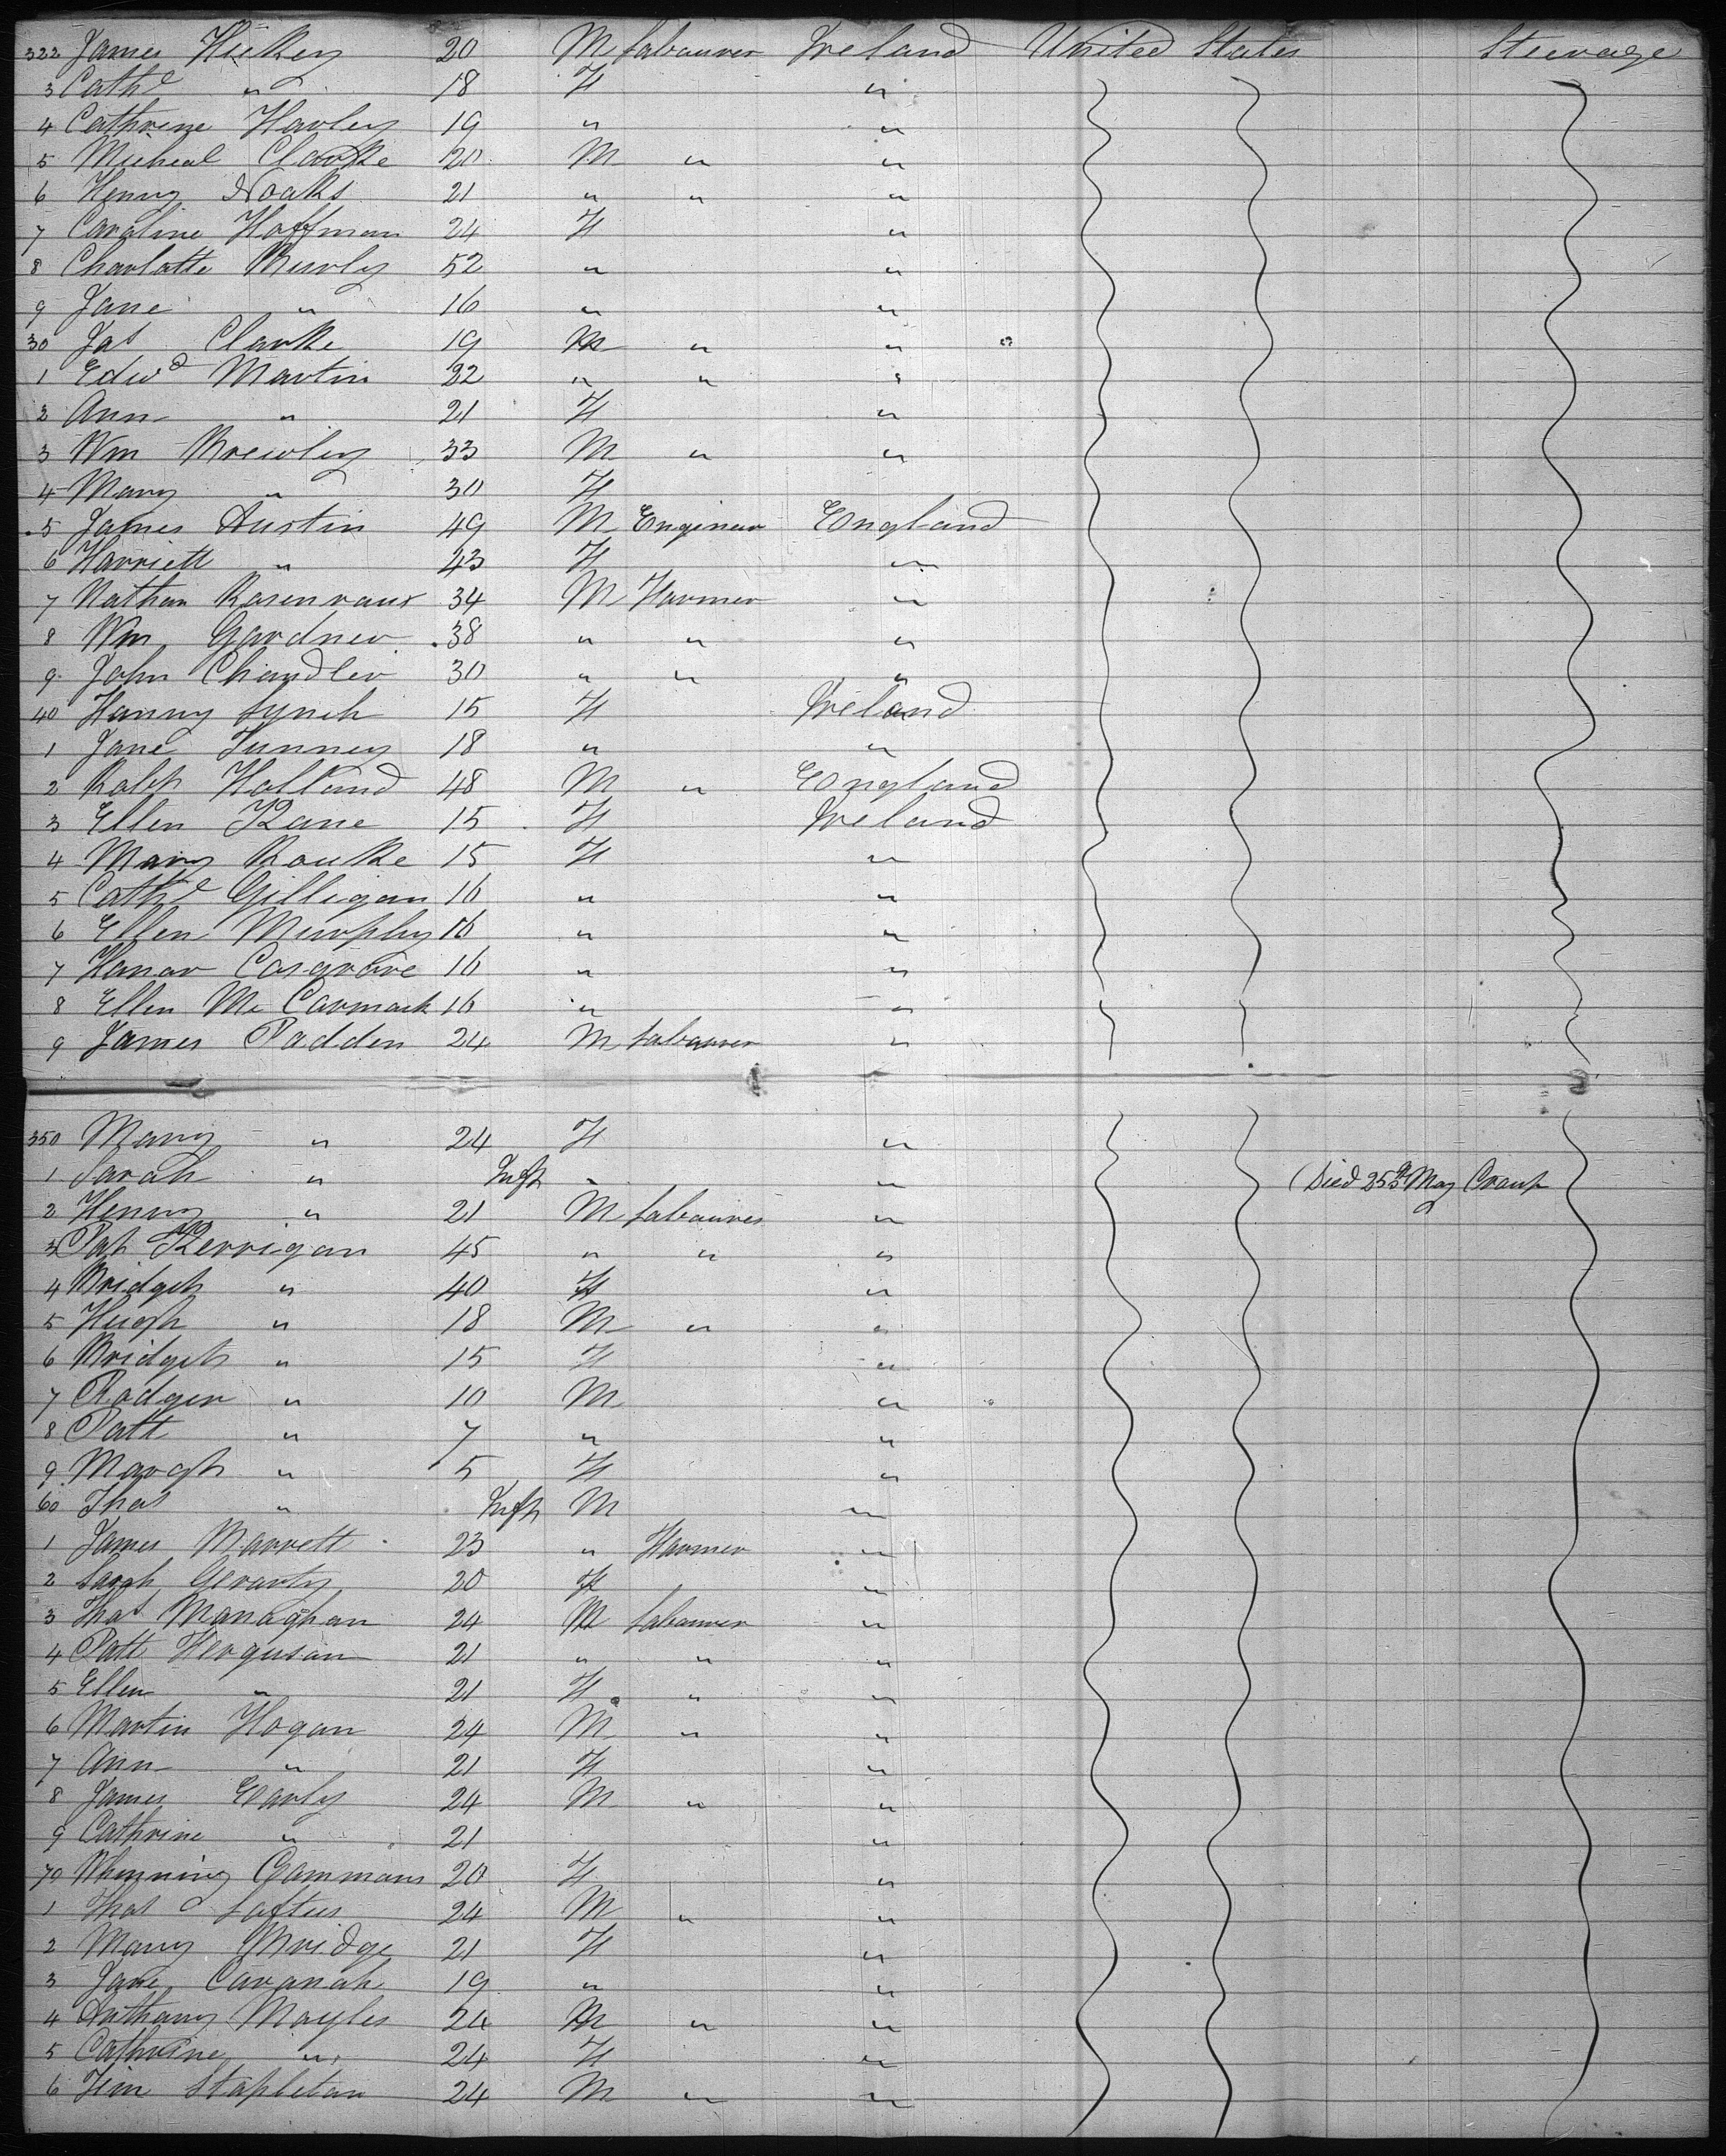 322 James Hickey 20 M Labourer Ireland United States Steerage
3 Cathe " 18 F "
4 Cathrine Harley 19 " "
5 Micheal Clarke 20 M " "
6 Henry Noaks 21 " " "
7 Caroline Hoffman 24 F "
8 Charlotte 52 " "
9 Jane " 16 " "
30 Jas Clarke 19 M " "
1 Edwd Martin 22 " " "
2 Ann " 21 F "
3 Wm Brewley 33 M " "
4 Mary " 30 F
5 James Austin 49 M Engineer England
6 Harriett " 43 F "
7 Nathan 34 M Farmer "
8 Wm Gardner 38 " " "
9 John Chandler 30 " " "
40 Fanny Lynch 15 F Ireland
1 Jane Tunney 18 " "
2 Ralph Holland 48 M " England
3 Ellen Kane 15 F Ireland
4 Mary Rourke 15 F "
5 Cathe Gilligan 16 " "
6 Ellen Murphy 16 " "
7 Hanar Cosgrove 16 " "
8 Ellen Mc Cormack 16 " "
9 James Padden 24 M Labourer "
350 Mary " 24 F "
1 Sarah " Inft " " (Died 25th May Croup
2 Henry " 21 M Labourer "
3 Pat Kerrigan 45 " " "
4 Bridget " 40 F "
5 Hugh " 18 M " "
6 Bridget " 15 F "
7 Rodger " 10 M "
8 Patt " 7 " "
9 Margt " 5 F "
60 Thos " Inft M "
1 James Marrett 23 " Farmer "
2 Sarah Gerarty 20 F "
3 Thos Managhan 24 M Labourer "
4 Patt Ferguson 21 " " "
5 Ellen " 21 F " "
6 Martin Hogan 24 M " "
7 Ann " 21 F "
8 James Early 24 M " "
9 Cathrine " 21 "
70 Cammans 20 F "
1 Thos Loftus 24 M " "
2 Mary Bridge 21 F "
3 Jane Cavanah 19 " "
4 Anthony Moyles 24 M " "
5 Cathrine " 24 F "
6 Jim Stapleton 24 M " "